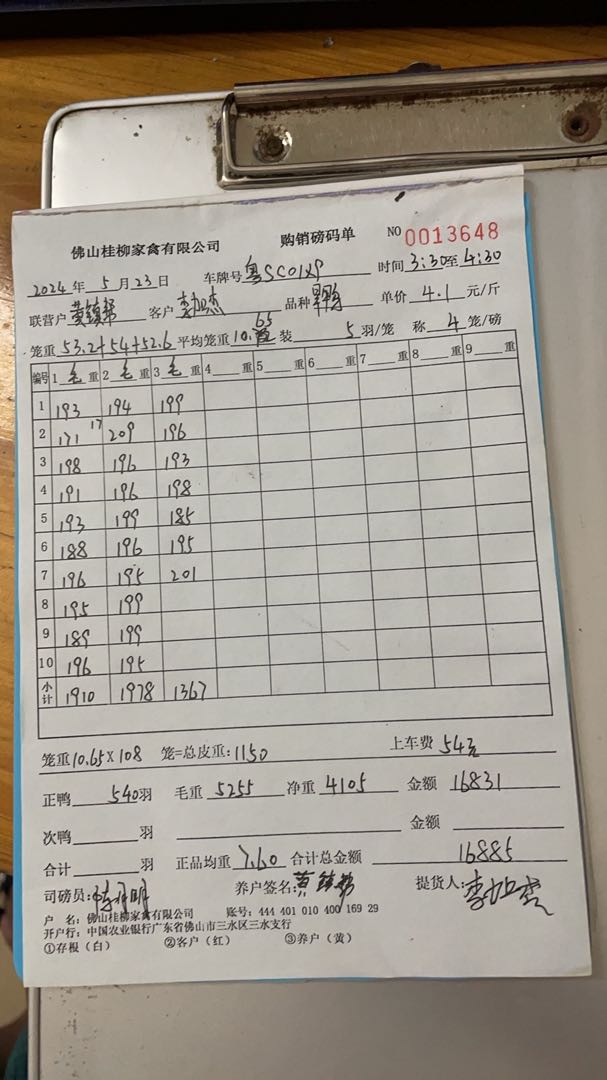 佛山桂柳家禽有限公司 购销磅码单 NO 0013648
2024年5月23日 车牌号粤SC01XP 时间3:30至4:30
联营户黄镇帮 客户 品种 单价4.1元/斤
笼重53.2+54+52.6 平均笼重10.65 装5羽/笼 称4笼/磅
编号 1毛重 2毛重 3毛重 4重 5重 6重 7重 8重 9重
1 193 194 199
2 171 17 209 196
3 198 196 193
4 191 196 198
5 193 199 185
6 188 196 195
7 196 195 201
8 195 199
9 189 199
10 196 195
小计 1910 1978 1367
笼重10.65×108 笼=总皮重:1150 上车费54元
正鸭540羽 毛重5255 净重4105 金额16831
次鸭 羽 金额
合计 羽 正品均重7.60 合计总金额16885
司磅员: 养户签名:黄镇帮 提货人:
户 名:佛山桂柳家禽有限公司 账号:444 401 010 400 169 29
开户行:中国农业银行广东省佛山市三水区三水支行
①存根(白) ②客户(红) ③养户(黄)